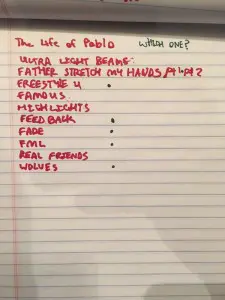 The Life of Pablo WHICH ONE?
ULTRA LIGHT BEAMS
FATHER STRETCH MY HANDS, Pt 1+Pt 2
FREESTYLE 4
FAMOUS
HIGHLIGHTS
FEEDBACK
FADE
FML
REAL FRIENDS
WOLVES